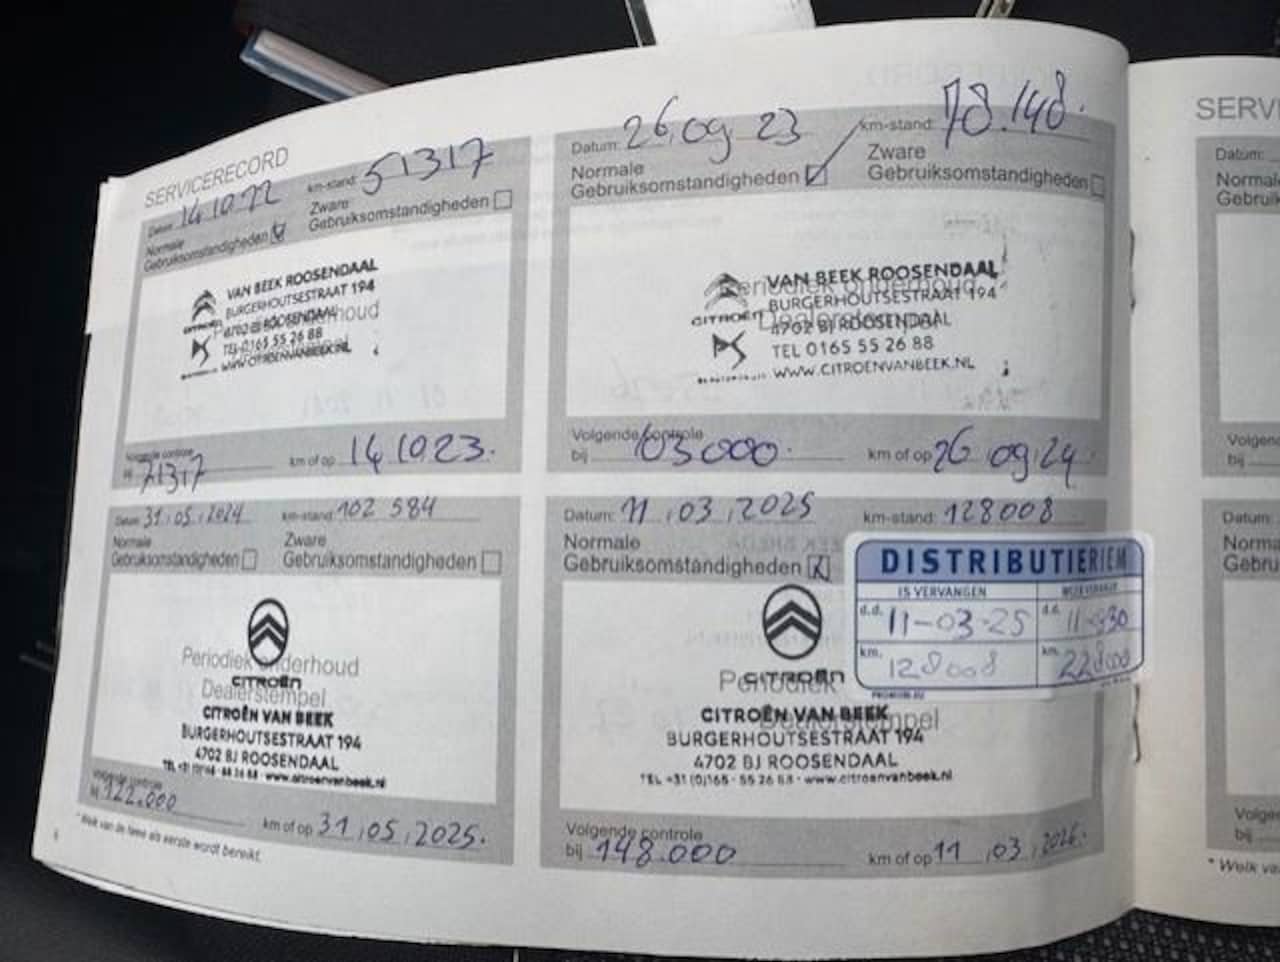 SERVICERECORD
Datum: 14 10 22 km-stand: 51317
Normale Gebruiksomstandigheden
Zware Gebruiksomstandigheden
VAN BEEK ROOSENDAAL
BURGERHOUTSESTRAAT 194
CITROËN 4702 BJ ROOSENDAAL
TEL 0165 55 26 88
WWW.CITROENVANBEEK.NL
Volgende controle
bij 71317 km of op 14 10 23.
Datum: 26 09 23 km-stand: 78.148.
Normale Gebruiksomstandigheden
Zware Gebruiksomstandigheden
Periodiek onderhoud
Dealerstempel
VAN BEEK ROOSENDAAL
BURGERHOUTSESTRAAT 194
CITROËN 4702 BJ ROOSENDAAL
TEL 0165 55 26 88
WWW.CITROENVANBEEK.NL
Volgende controle
bij 103000. km of op 26 09 24.
Datum: 31.05.2024 km-stand: 102 584
Normale Gebruiksomstandigheden
Zware Gebruiksomstandigheden
Periodiek onderhoud
CITROËN
Dealerstempel
CITROËN VAN BEEK
BURGERHOUTSESTRAAT 194
4702 BJ ROOSENDAAL
TEL +31 (0)165 - 55 26 88 - www.citroenvanbeek.nl
Volgende controle
bij 122.000 km of op 31.05.2025.
* Welk van de twee als eerste wordt bereikt.
Datum: 11.03.2025 km-stand: 128008
Normale
Gebruiksomstandigheden
DISTRIBUTIERIEM
IS VERVANGEN
d.d. 11-03-25 d.d.
km. 128008 km. 228000
Periodiek
CITROËN
Dealerstempel
CITROËN VAN BEEK
BURGERHOUTSESTRAAT 194
4702 BJ ROOSENDAAL
TEL +31 (0)165 - 55 26 88 - www.citroenvanbeek.nl
Volgende controle
bij 148.000 km of op 11.03.2026.
SERVI
Datum:
Normal
Gebruik
Volgen
bij
Datum
Norma
Gebru
Volge
bij
* Welk va